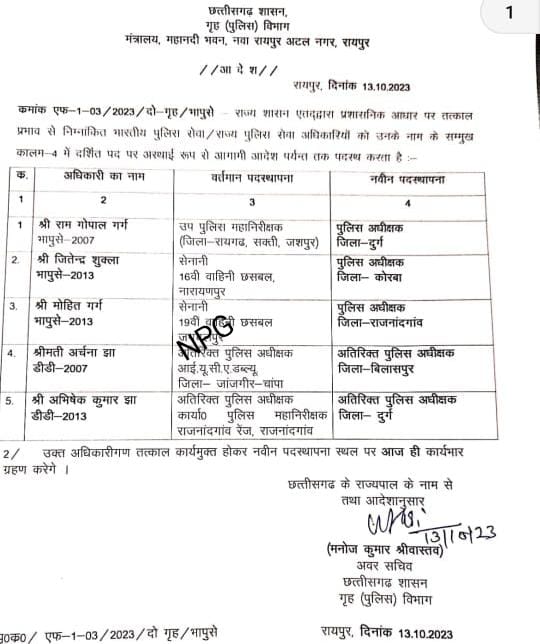 1
छत्तीसगढ़ शासन,
गृह (पुलिस) विभाग
मंत्रालय, महानदी भवन, नवा रायपुर अटल नगर, रायपुर
//आ दे श//
रायपुर, दिनांक 13.10.2023
क्रमांक एफ-1-03/2023/दो-गृह/भापुसे - राज्य शासन एतद्द्वारा प्रशासनिक आधार पर तत्काल
प्रभाव से निम्नांकित भारतीय पुलिस सेवा/राज्य पुलिस सेवा अधिकारियों को उनके नाम के सम्मुख
कालम-4 में दर्शित पद पर अस्थाई रूप से आगामी आदेश पर्यन्त तक पदस्थ करता है :-
क. अधिकारी का नाम वर्तमान पदस्थापना नवीन पदस्थापना
1 2 3 4
1 श्री राम गोपाल गर्ग उप पुलिस महानिरीक्षक पुलिस अधीक्षक
भापुसे-2007 (जिला-रायगढ़, सक्ती, जशपुर) जिला-दुर्ग
2. श्री जितेन्द्र शुक्ला सेनानी पुलिस अधीक्षक
भापुसे-2013 16वी वाहिनी छसबल, जिला- कोरबा
नारायणपुर
3. श्री मोहित गर्ग सेनानी पुलिस अधीक्षक
भापुसे-2013 19वी वाहिनी छसबल जिला-राजनांदगांव
NPG
4. श्रीमती अर्चना झा अतिरिक्त पुलिस अधीक्षक अतिरिक्त पुलिस अधीक्षक
डीडी-2007 आई.यू.सी.ए.डब्ल्यू जिला-बिलासपुर
जिला- जांजगीर-चांपा
5. श्री अभिषेक कुमार झा अतिरिक्त पुलिस अधीक्षक अतिरिक्त पुलिस अधीक्षक
डीडी-2013 कार्या0 पुलिस महानिरीक्षक जिला- दुर्ग
राजनांदगांव रेंज, राजनांदगांव
2/ उक्त अधिकारीगण तत्काल कार्यमुक्त होकर नवीन पदस्थापना स्थल पर आज ही कार्यभार
ग्रहण करेगे ।
छत्तीसगढ़ के राज्यपाल के नाम से
तथा आदेशानुसार
13/10/23
(मनोज कुमार श्रीवास्तव)
अवर सचिव
छत्तीसगढ़ शासन
गृह (पुलिस) विभाग
पृ0क0/ एफ-1-03/2023/दो गृह/भापुसे रायपुर, दिनांक 13.10.2023